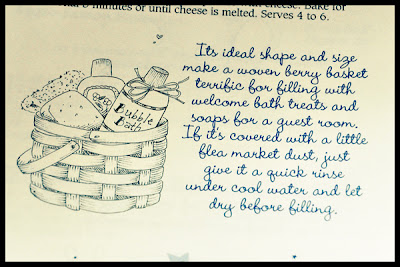 minutes or until cheese is melted. Serves 4 to 6.
Its ideal shape and size
make a woven berry basket
terrific for filling with
welcome bath treats and
soaps for a guest room.
If it's covered with a little
flea market dust, just
give it a quick rinse
under cool water and let
dry before filling.
Bubble
Bath